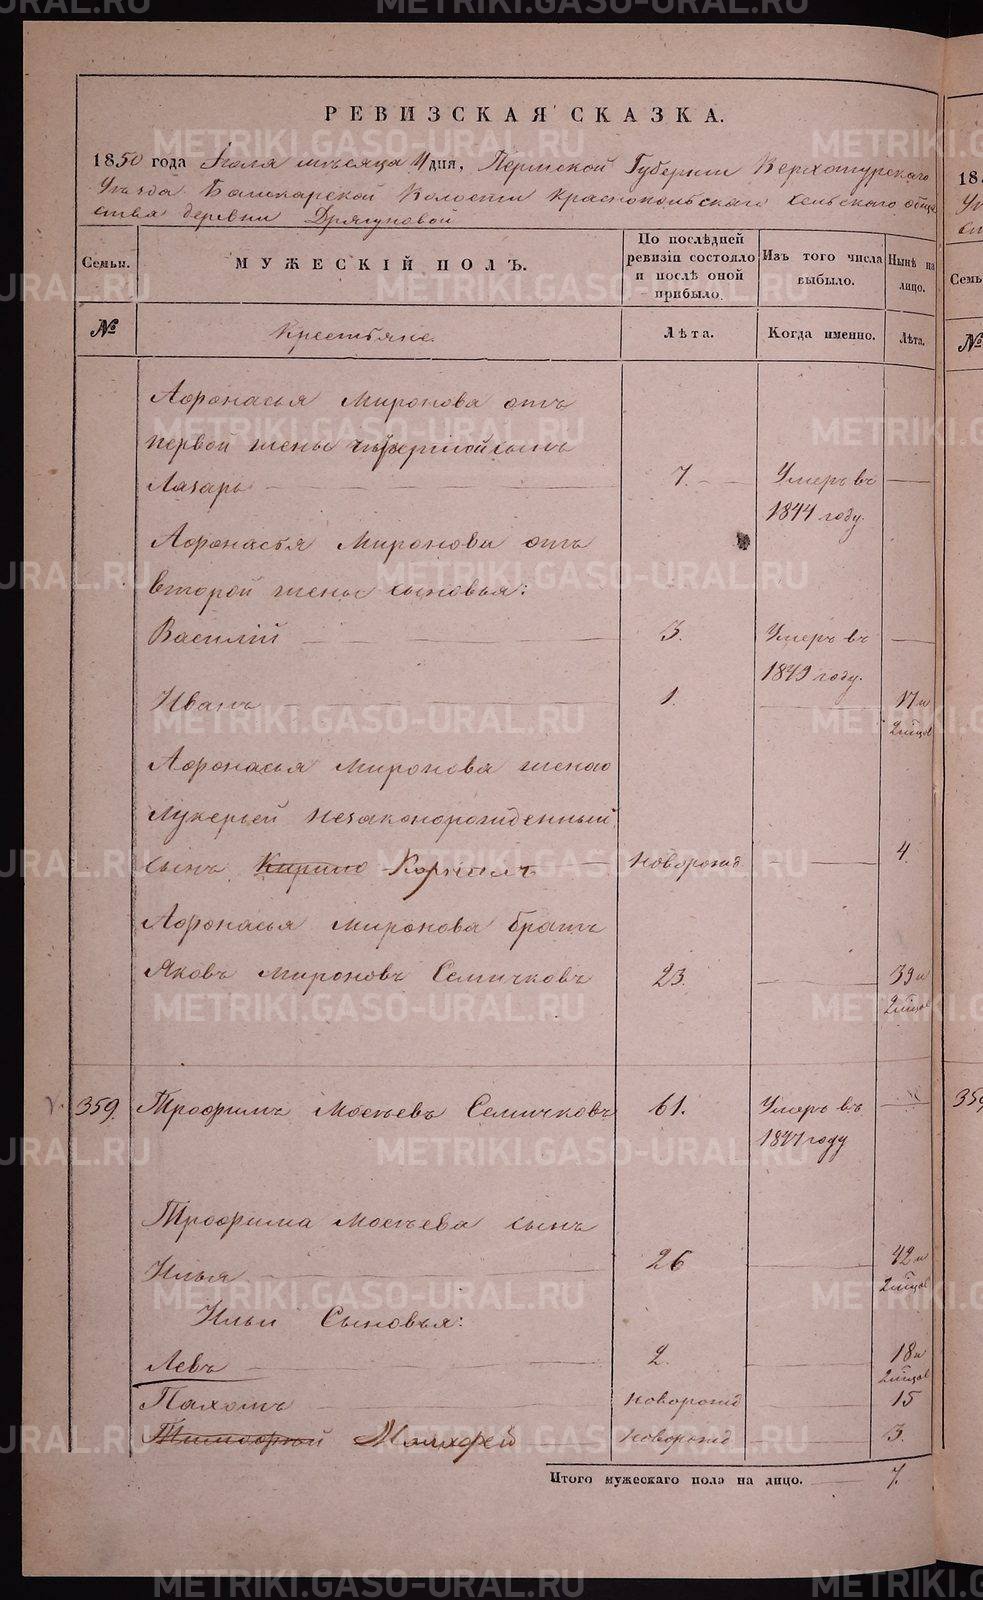 РЕВИЗСКАЯ СКАЗКА.
1850 года Іюля мѣсяца 11 дня, Пермской Губерніи Верхотурскаго
Уѣзда Башкарской Волости Краснопольскаго Сельскаго обще
ства деревни Дрягуновой
Семьи.
МУЖЕСКІЙ ПОЛЪ.
По послѣдней ревизіи состояло и послѣ оной прибыло.
Изъ того числа выбыло.
Нынѣ на лицо.
№
Крестьяне.
Лѣта.
Когда именно.
Лѣта.
Афонасья Миронова отъ
первой жены четвертой сынъ
Лазарь 7. Умеръ въ
1844 году.
Афонасья Миронова отъ
второй жены сыновья:
Василій 3. Умеръ въ
1849 году.
Иванъ 1. 17 и
2 мѣсяц
Афонасья Миронова женою
Лукерьей незаконорожденный
сынъ Кирило Корнилъ новорожд 4
Афонасья Миронова братъ
Яковъ Мироновъ Семичковъ 23. 39 и
2 мѣсяц
359. Трофимъ Мосѣевъ Семичковъ 61. Умеръ въ
1847 году
Трофима Мосѣева сынъ
Илья 26 42 и
2 мѣсяц
Ильи Сыновья:
Левъ 2. 18 и
2 мѣсяц
Пахомъ новорожд 15
Тимофей новорожд 3.
Итого мужескаго пола на лицо. 7.
METRIKI.GASO-URAL.RU